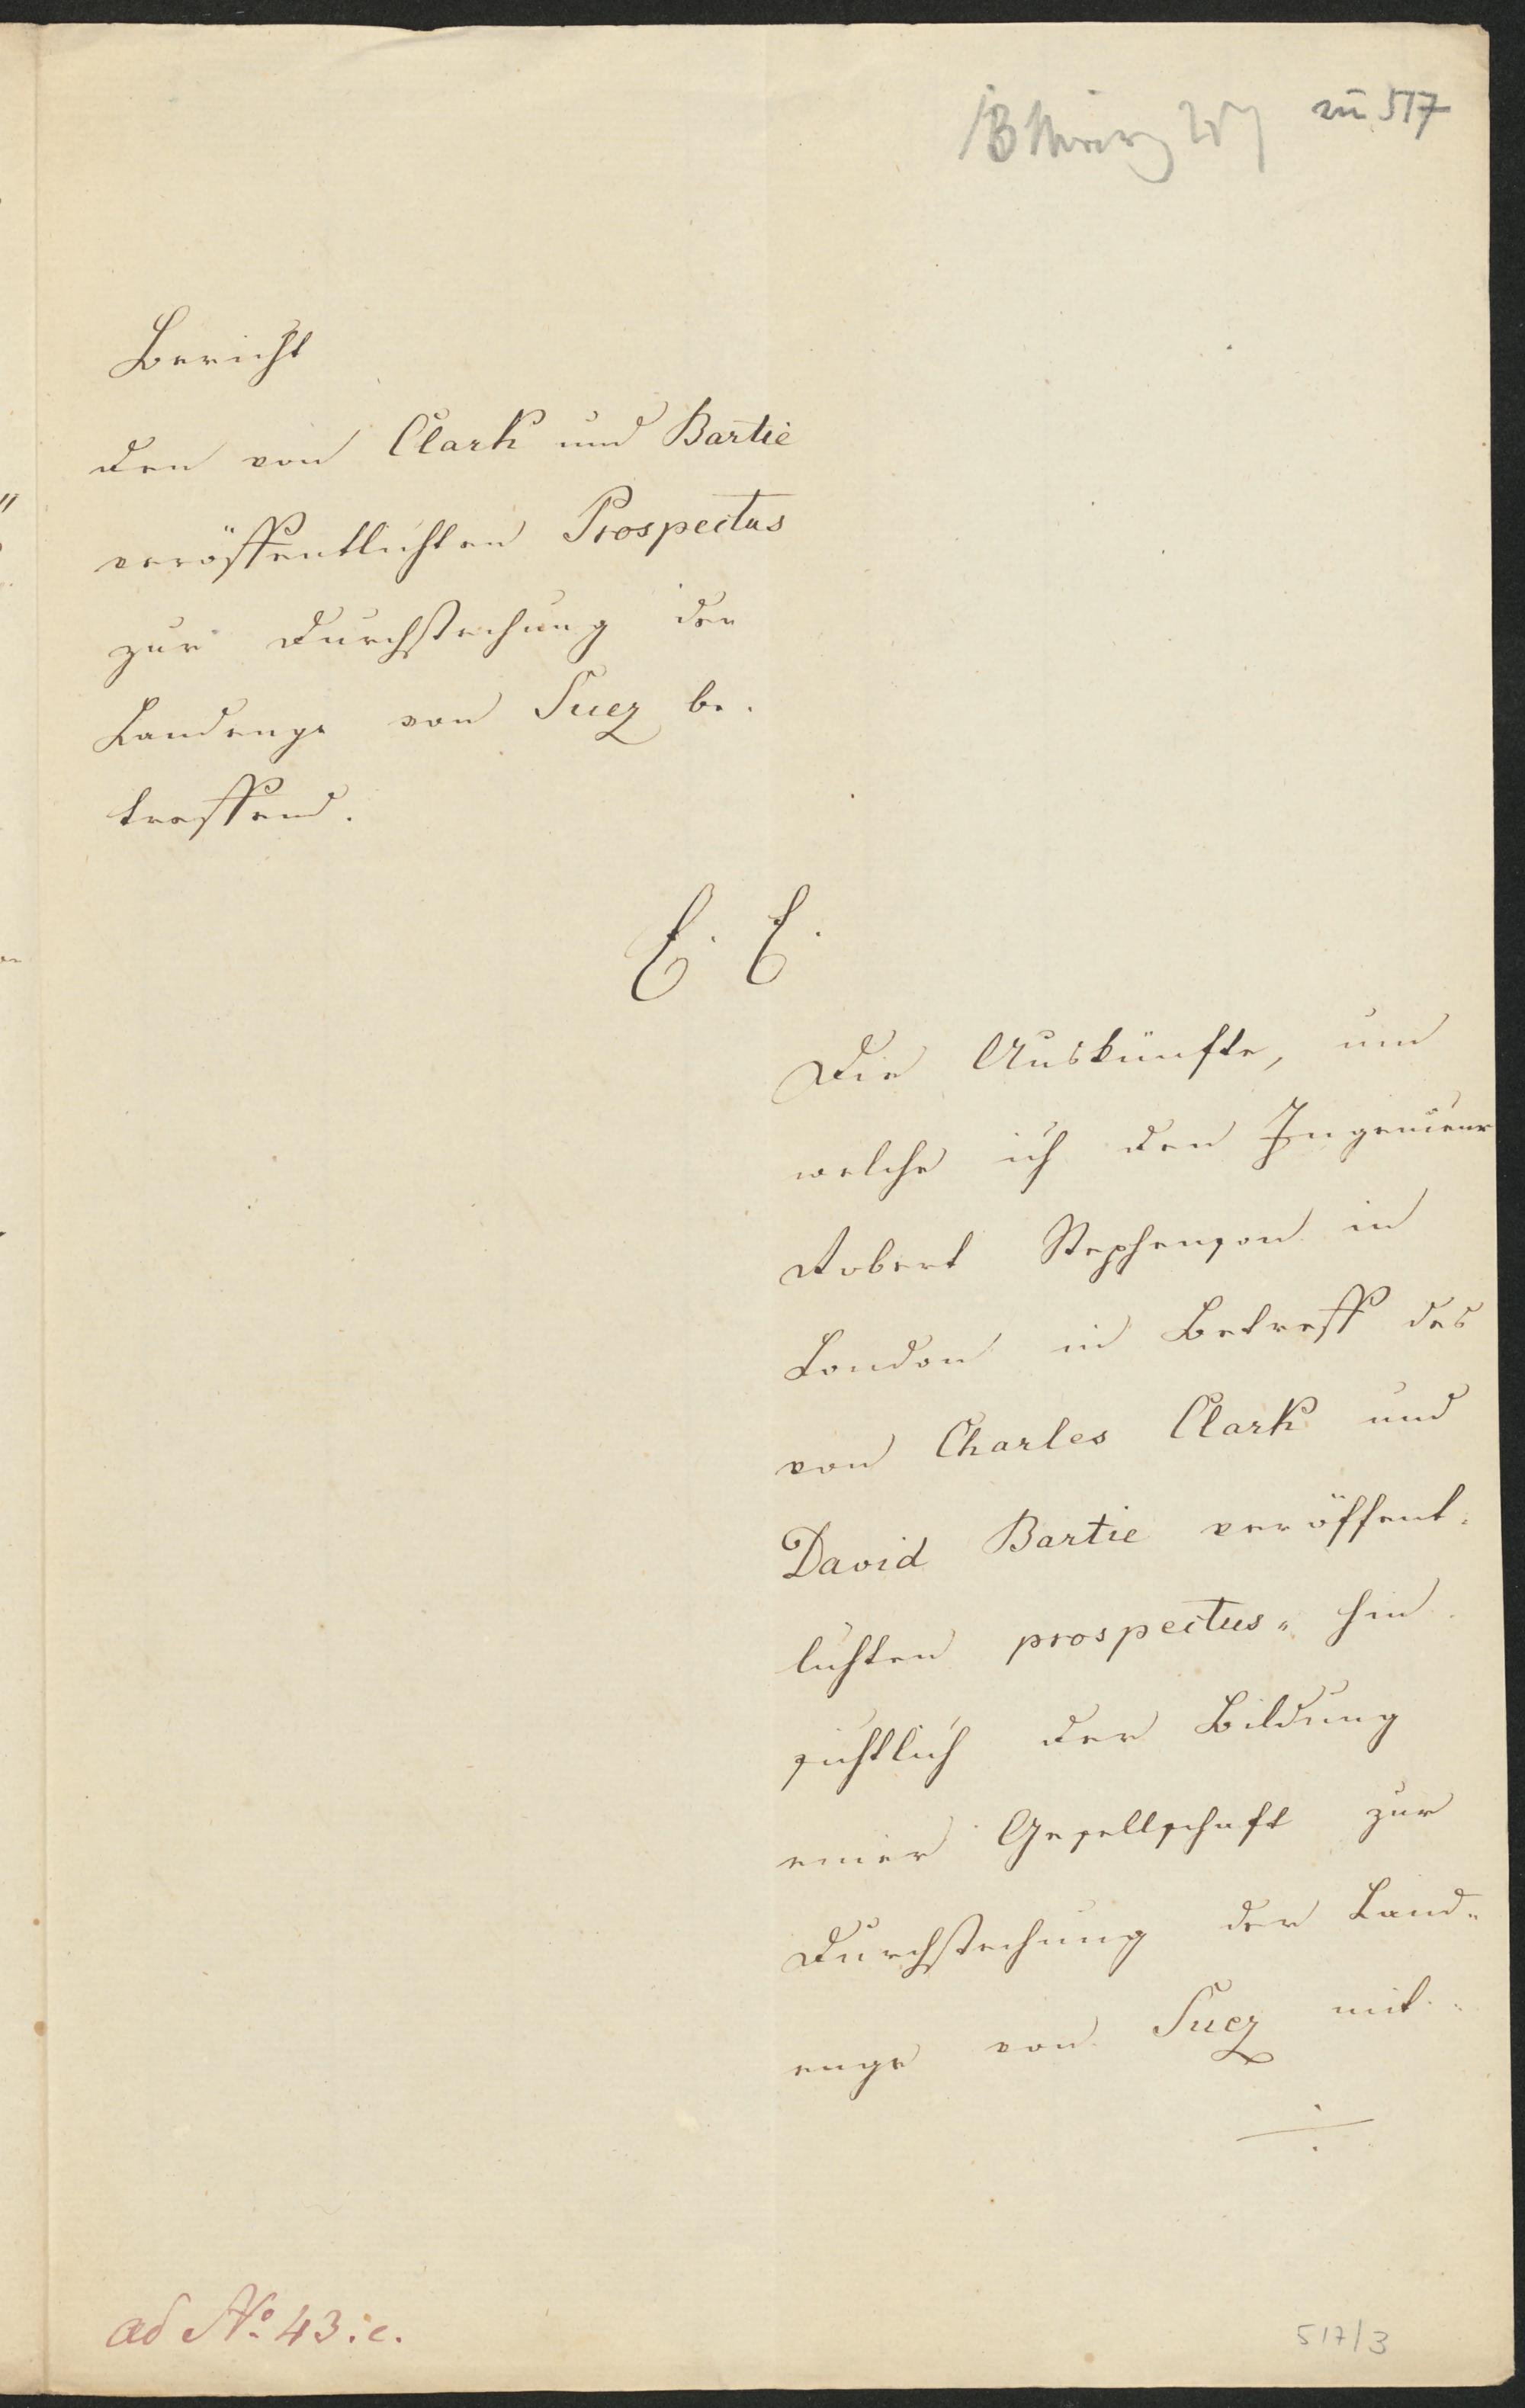 zu 517
Bericht
den von Clark und Bartie
veröffentlichten Prospectus
zur Durchstechung der
Landenge von Suez be-
treffend.
E. E.
Die Auskünfte, um
welche ich den Ingenieur
Robert Stephenson in
London in Betreff des
von Charles Clark und
David Bartie veröffent-
lichten prospectus" hin
sichtlich der Bildung
einer Gesellschaft zur
Durchstechung der Land-
enge von Suez mit-
ad No. 43.c.
517/3